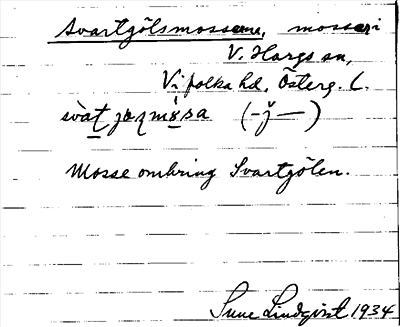 Svartgölsmosserne, mossar i
V. Hargs sn,
Vifolka hd, Österg. L.
Mosse omkring Svartgölen.
Sune Lindqvist 1934